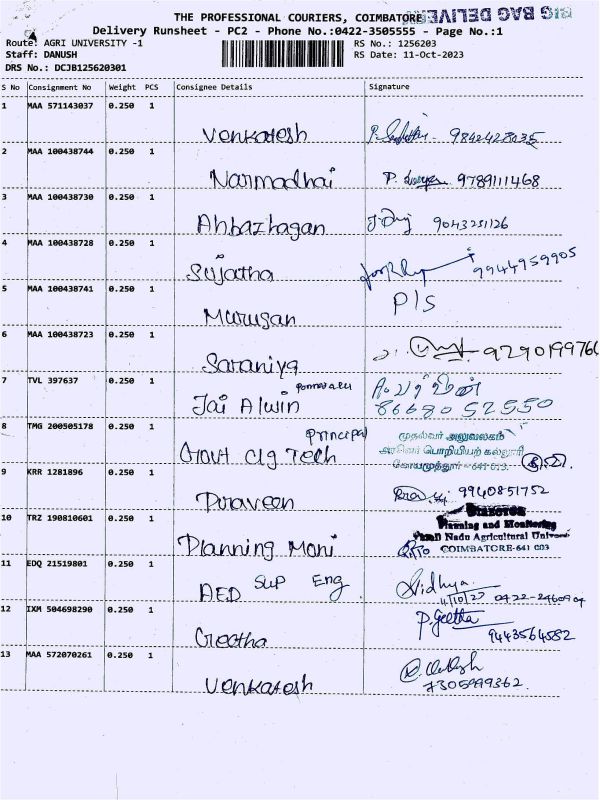 THE PROFESSIONAL COURIERS, COIMBATORE
BIG BAG DELIVERY
Delivery Runsheet - PC2 - Phone No.:0422-3505555 - Page No.:1
Route: AGRI UNIVERSITY -1
RS No.: 1256203
Staff: DANUSH
RS Date: 11-Oct-2023
DRS No.: DCJB125620301
S No Consignment No Weight PCS Consignee Details Signature
1 MAA 571143037 0.250 1
Venkatesh 9842428035
2 MAA 100438744 0.250 1
Narmadhai P. 9789111468
3 MAA 100438730 0.250 1
Anbazhagan 9043251126
4 MAA 100438728 0.250 1
Sujatha 9944959905
5 MAA 100438741 0.250 1
P/S
Murugan
6 MAA 100438723 0.250 1
Saraniya 9290199766
7 TVL 397637 0.250 1
Jai Alwin
8668052550
8 TMG 200505178 0.250 1
principal
Govt Clg Tech
முதல்வர் அலுவலகம்
அரசினர் பொறியியற் கல்லூரி
கோயமுத்தூர் - 641 013.
9 KRR 1281896 0.250 1
Praveen 9940851752
10 TRZ 190810601 0.250 1
Planning Moni
DIRECTOR
Planning and Monitoring
Tamil Nadu Agricultural Univers
COIMBATORE-641 003
11 EDQ 21519801 0.250 1
AED Sup Eng Vidhya
0422-2460904
12 IXM 504698290 0.250 1
Geetha P. Geetha
9443564582
13 MAA 572070261 0.250 1
Venkatesh
7305999362.